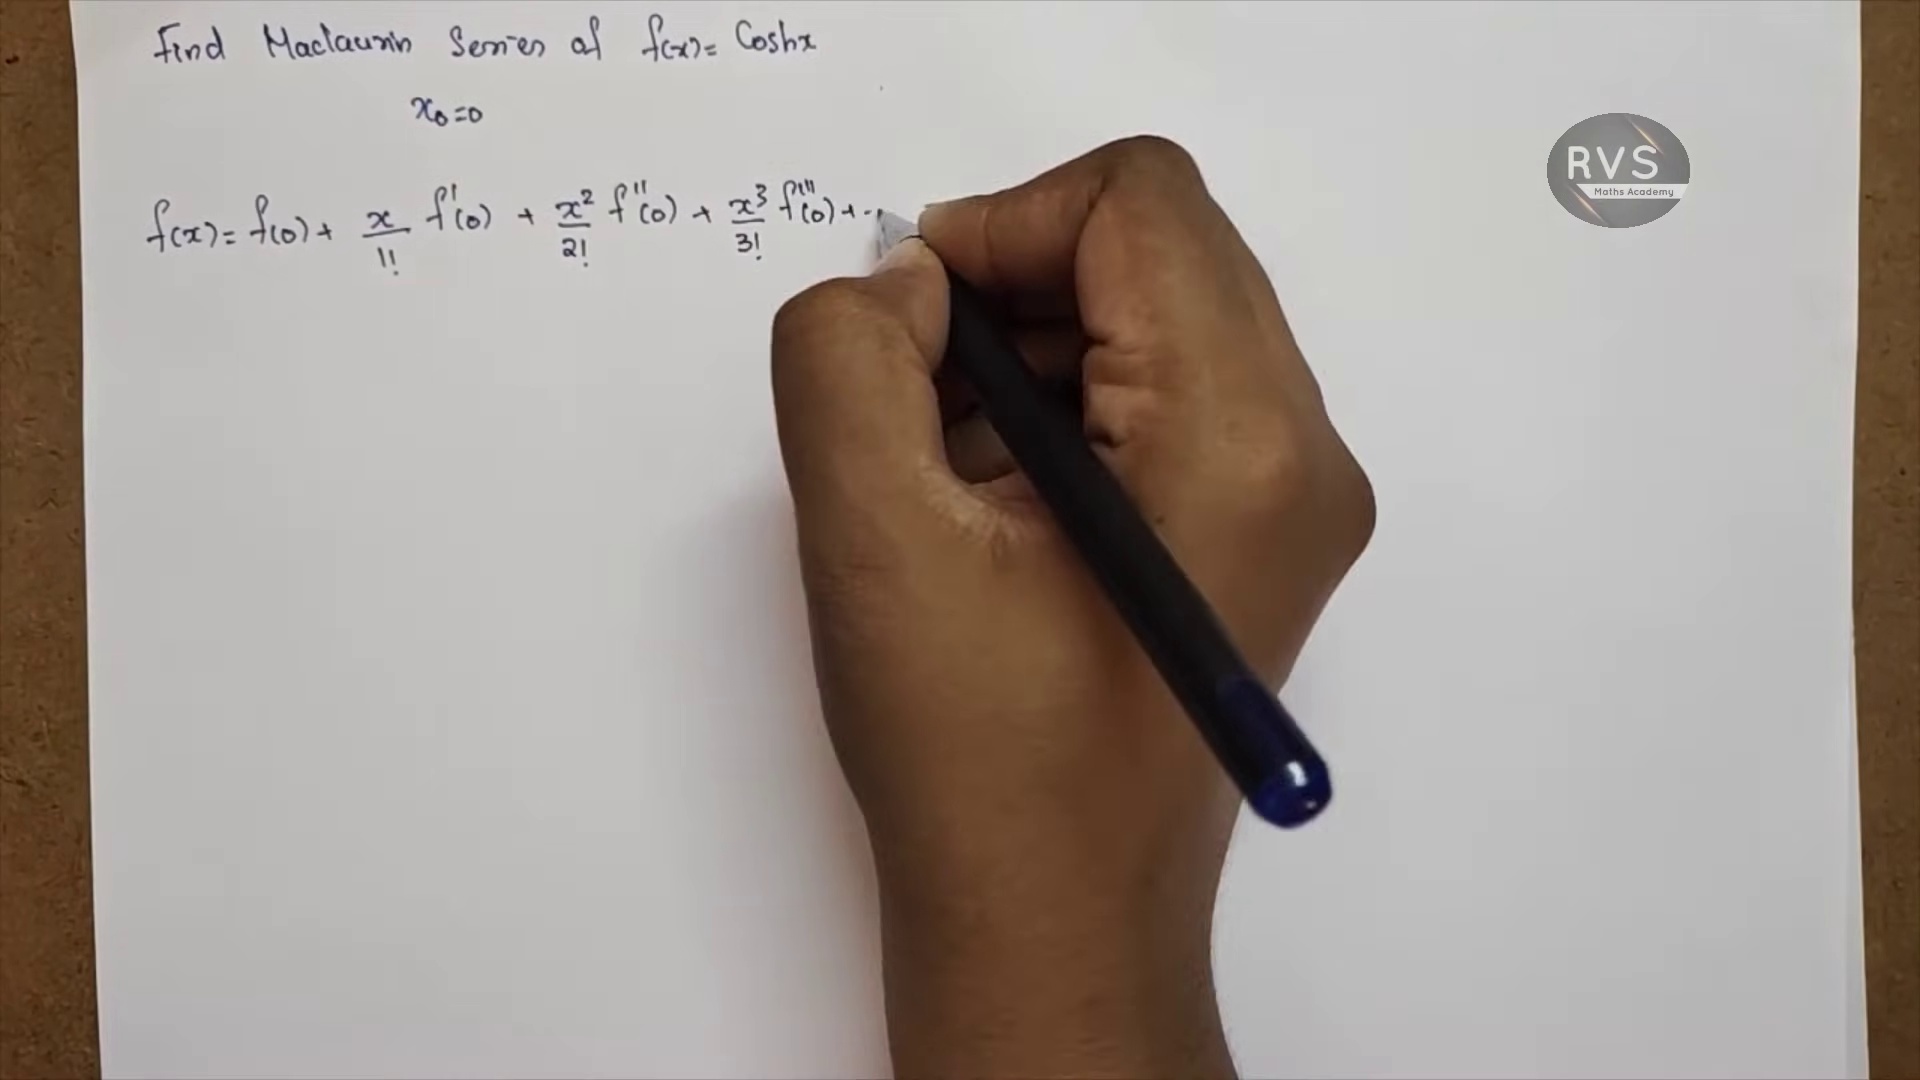 Find Maclaurin Series of f(x) = Coshx
x₀=0
f(x) = f(0) + x/1! f'(0) + x²/2! f''(0) + x³/3! f'''(0) + ..
RVS
Maths Academy